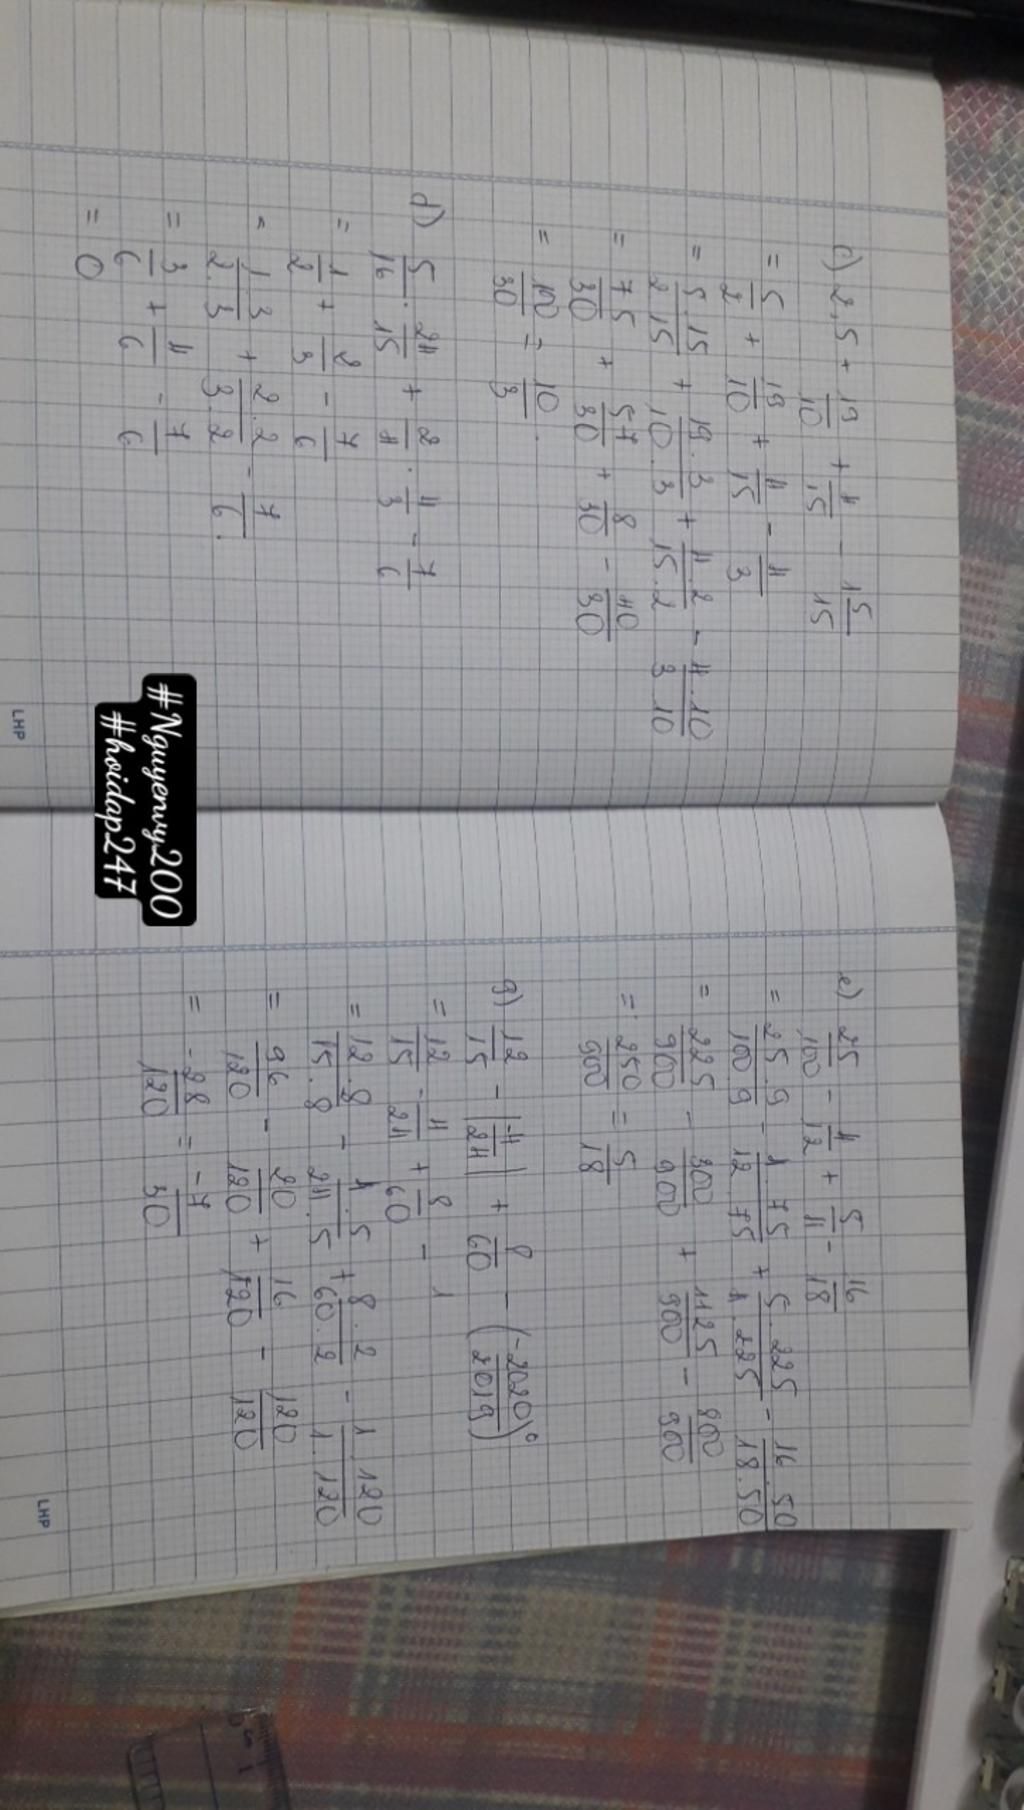 c) 2,5 + 19/10 + 4/15 - 15/15
= 5/2 + 19/10 + 4/15 - 4/3
= 5.15/2.15 + 19.3/10.3 + 4.2/15.2 - 4.10/3.10
= 75/30 + 57/30 + 8/30 - 40/30
= 100/30 = 10/3.
d) 5/16 . 24/15 + 2/4 . 4/3 - 7/6
= 1/2 + 2/3 - 7/6
= 1.3/2.3 + 2.2/3.2 - 7/6.
= 3/6 + 4/6 - 7/6
= 0
LHP
#Nguyenvy200
#hoidap247
e) 25/100 - 4/12 + 5/4 - 16/18
= 25.9/100.9 - 4.75/12.75 + 5.225/4.225 - 16.50/18.50
= 225/900 - 300/900 + 1125/900 - 800/900
= 250/900 = 5/18
g) 12/15 - |-4/24| + 8/60 - (-2020/2019)⁰
= 12/15 - 4/24 + 8/60 - 1
= 12.8/15.8 - 4.5/24.5 + 8.2/60.2 - 1.120/1.120
= 96/120 - 20/120 + 16/120 - 120/120
= -28/120 = -7/30
LHP